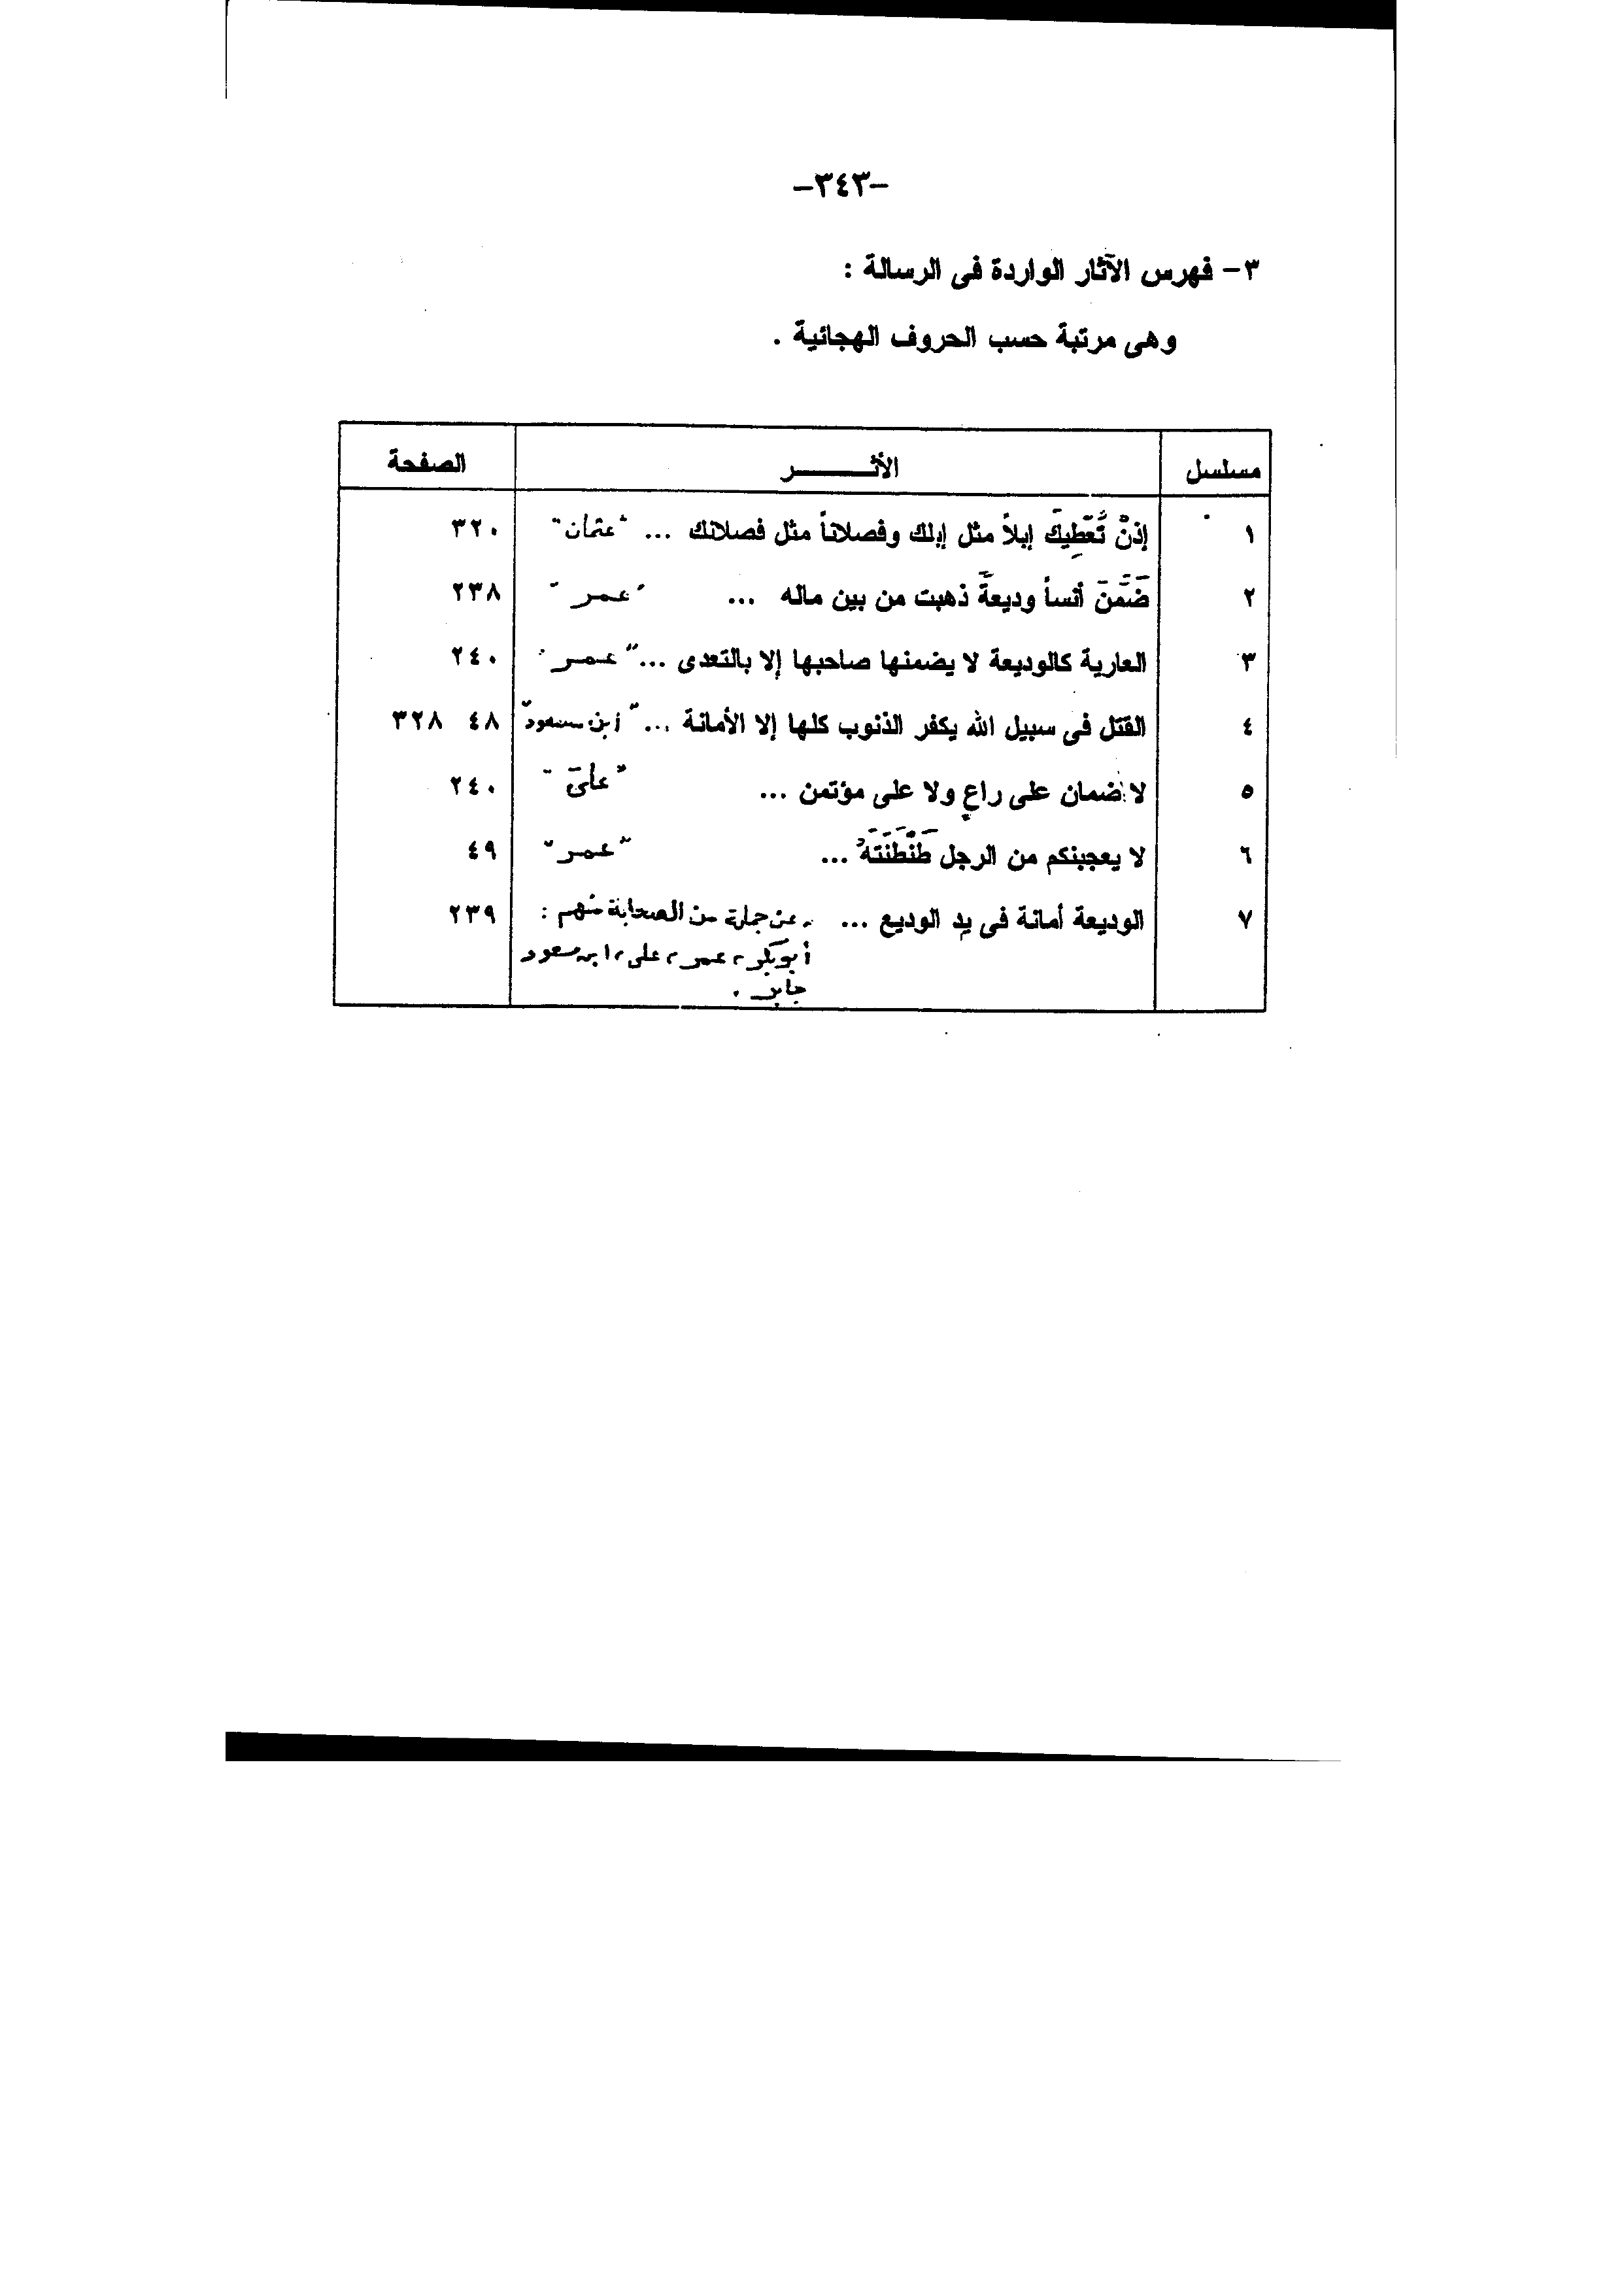 -٣٤٣-
٣- فهرس الآثار الواردة فى الرسالة :
وهى مرتبة حسب الحروف الهجائية .
مسلسل الأثـــــر الصفحة
١ إذنْ نُعْطِيكَ إبلاً مثل إبلك وفصلاناً مثل فصلانك ... "عثمان" ٣٢٠
٢ ضَمَّنَ أنساً وديعةً ذهبت من بين ماله ... "عمر" ٢٣٨
٣ العارية كالوديعة لا يضمنها صاحبها إلا بالتعدى ... "عمر" ٢٤٠
٤ القتل فى سبيل الله يكفر الذنوب كلها إلا الأمانة ... "ابن مسعود" ٤٨ ٣٢٨
٥ لا ضمان على راعٍ ولا على مؤتمن ... "على" ٢٤٠
٦ لا يعجبنكم من الرجل طَنْطَنَتَهُ ... "عمر" ٤٩
٧ الوديعة أمانة فى يد الوديع ... عن جملة من الصحابة منهم : ٢٣٩
أبوبكر ، عمر ، على ، ابن مسعود
جابر .